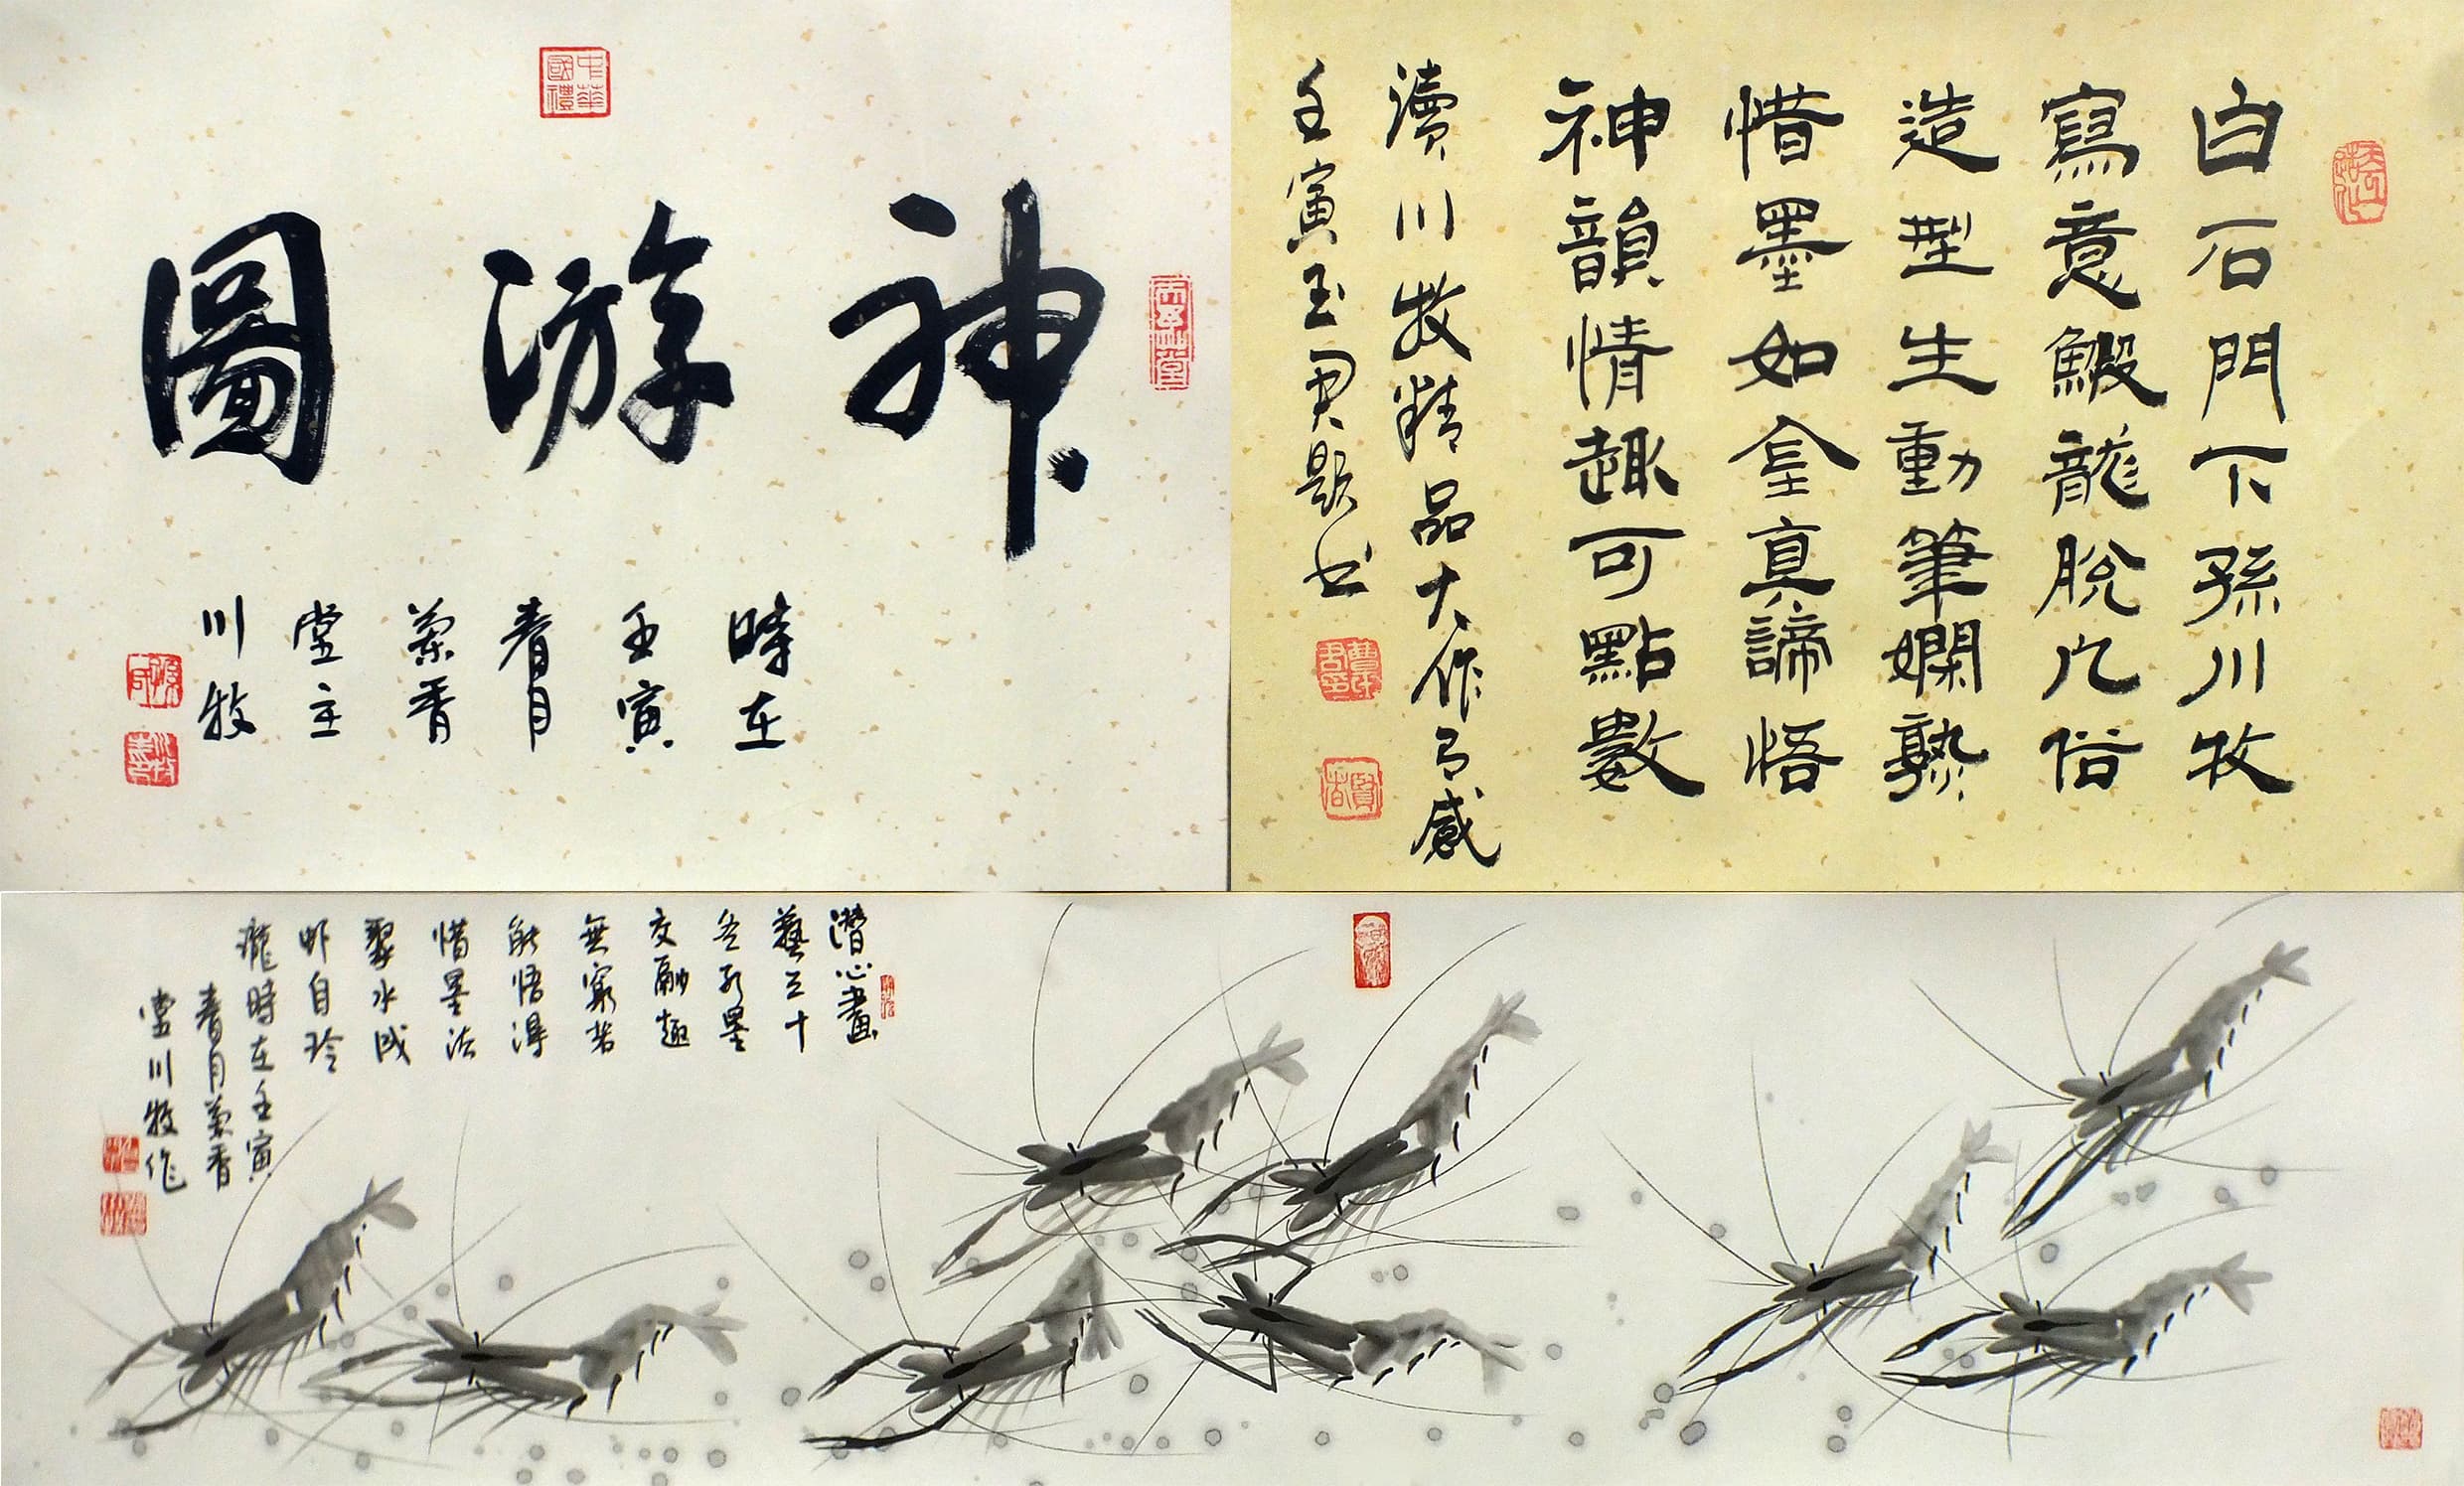 中華國禮
神游圖
時在
壬寅
春月
蘭香
堂主
川牧
白石門下孫川牧
寫意鰕龍脫凡俗
造型生動筆嫻熟
惜墨如金真諦悟
神韻情趣可點數
讀川牧精品大作有感
壬寅 玉君題书
潛心畫
藝三十
冬 彩墨
交融趣
無窮若
能悟得
惜墨法
聚水成
蝦自玲
瓏 時在壬寅
春月蘭香
堂川牧作